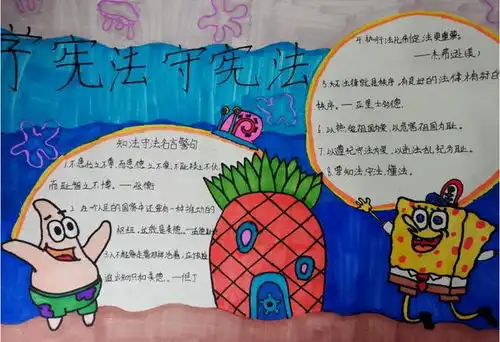 学宪法守宪法
知法守法名言警句
1.不患位之不尊,而患德之不崇,不耻禄之不伙,
而耻智之不博。——张衡
2. 在一个人民的国家中还要有一种推动的
枢纽,这就是美德。——孟德
3.人不能像走兽那样活着,应该
追求知识和美德。——但丁
4.执行法比制定法更重要。
——杰弗逊(美)
5.法律就是秩序,有良好的法律才有好的
秩序。——亚里士多德
6.以热爱祖国为荣,以危害祖国为耻。
7.以遵纪守法为荣,以违法乱纪为耻。
8.学知法,守法,懂法。